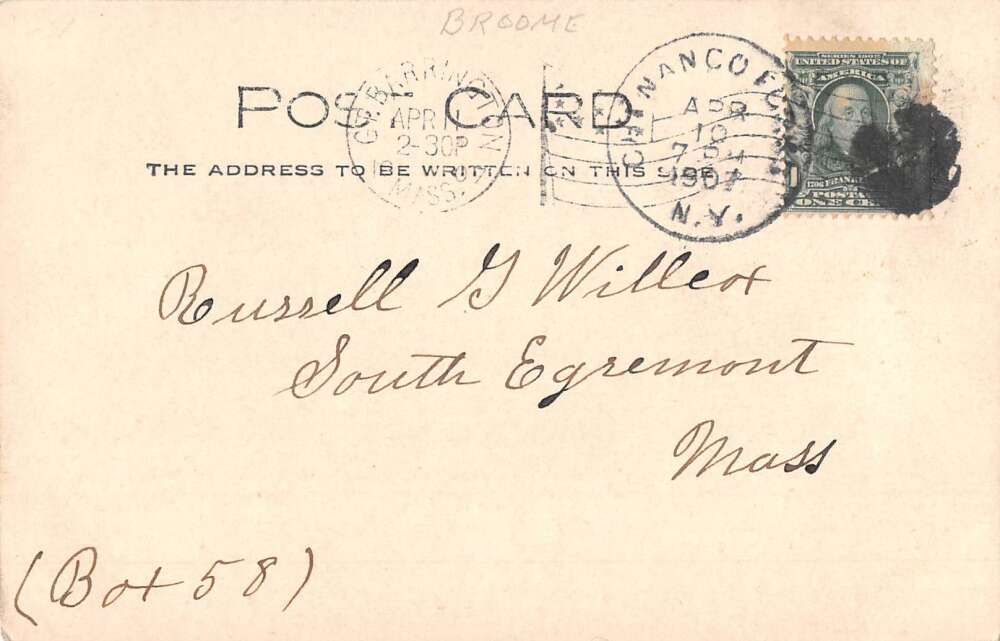 BROOME
POST CARD
THE ADDRESS TO BE WRITTEN ON THIS SIDE
GT. BARRINGTON
APR 11
2-30P
19
MASS.
CHENANGO FORKS
APR
10
7 PM
1907
N.Y.
SERIES 1902
UNITED STATES OF
AMERICA
1706 FRANKLIN
POSTAGE
ONE CENT
Russell G Willcox
South Egremont
Mass
(Box 58)